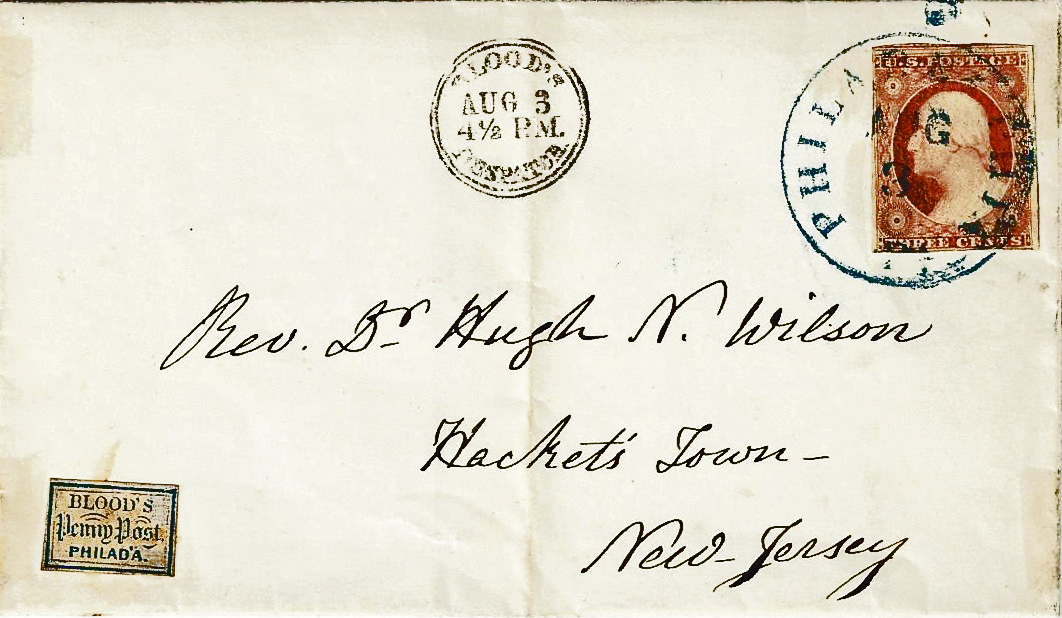 BLOOD'S
AUG 3
4½ P.M.
DESPATCH
U.S. POSTAGE
THREE CENTS
PHILA
Rev. Dr Hugh N. Wilson
Hacket's Town -
New-Jersey
BLOOD'S
Penny Post.
PHILAD'A.